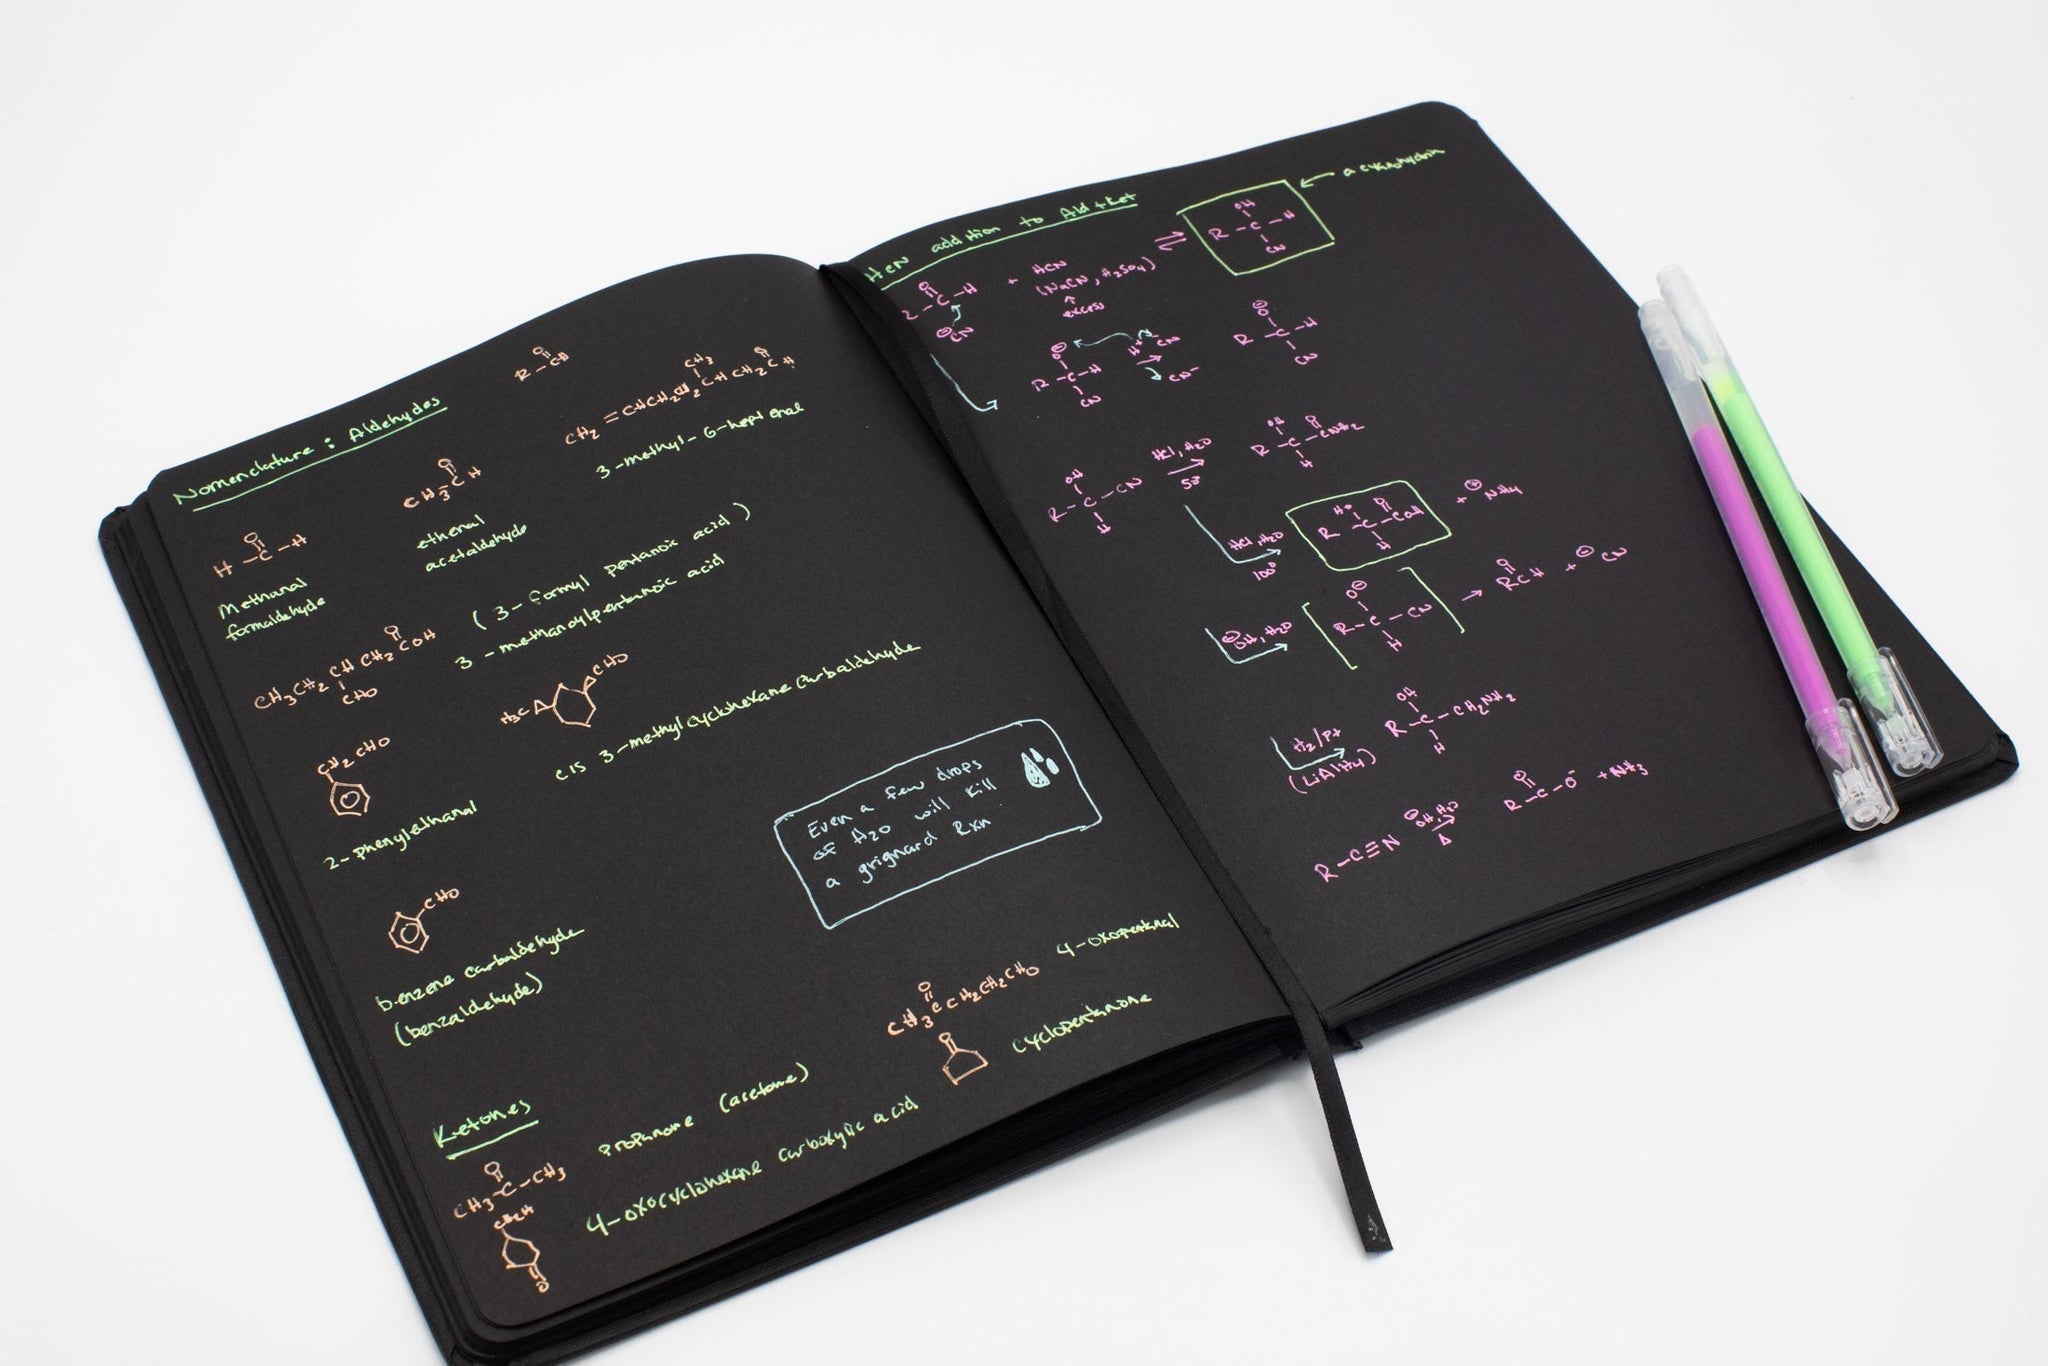 Nomenclature: Aldehydes
R - CH
O
CH2 = CHCH2CH2CHCH2CH
CH3
O
3-methyl-6-heptenal
H - C - H
O
Methanal
formaldehyde
CH3CH
O
ethenal
acetaldehyde
CH3CH2CHCH2COH
O
CHO
(3-formyl pentanoic acid)
3-methanoylpentanoic acid
H3C
CHO
cis 3-methylcyclohexane carbaldehyde
CH2CHO
2-phenylethanal
Even a few drops
of H2O will kill
a grignard Rxn
CHO
benzene carbaldehyde
(benzaldehyde)
CH3CCH2CH2CHO
O
4-oxopentanal
cyclopentanone
Ketones
O
CH3-C-CH3
Propanone (acetone)
4-oxocyclohexane carboxylic acid
O
HCN addition to Ald + Ket
a cyanohydrin
OH
R - C - H
CN
O
C-H + HCN
(NaCN, H2SO4)
excess
⊖CN
O⊖
R - C - H
CN
H+ CN
CN-
O⊖
R - C - H
CN
OH
R - C - CN
H
HCl, H2O
OH O
R - C - CNH2
H
HCl, H2O
100°
HO O
R - C - COH
H
+ ⊕NH4
⊖OH, H2O
O⊖
R - C - CN
H
→ RCH + ⊖CN
O
H2/Pt
(LiAlH4)
OH
R - C - CH2NH2
H
R - C≡N
⊖OH, H2O
Δ
O
R - C - O- + NH3